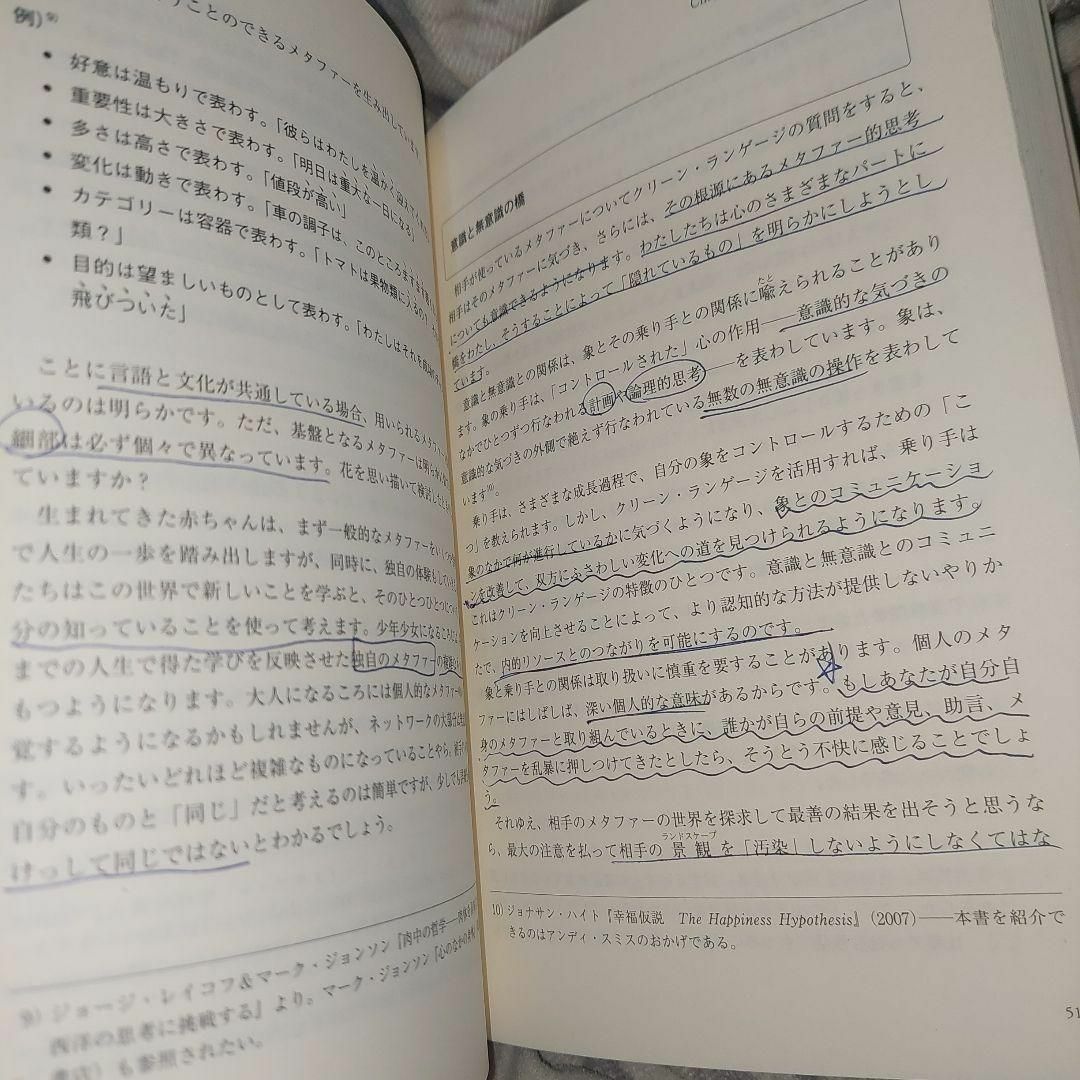 うことのできるメタファーを生み出しています
例)9)
• 好意は温もりで表わす。「彼らはわたしを温かく迎えてくれた
• 重要性は大きさで表わす。「明日は重大な一日になる
• 多さは高さで表わす。「値段が高い」
• 変化は動きで表わす。「車の調子は、このところますます
• カテゴリーは容器で表わす。「トマトは果物類に入るの?
類?」
• 目的は望ましいものとして表わす。「わたしはそれを
飛びついた」
ことに言語と文化が共通している場合、用いられるメタファー
いるのは明らかです。ただ、基盤となるメタファーは明ら
細部は必ず個々で異なっています。花を思い描いて検討したと
ていますか?
生まれてきた赤ちゃんは、まず一般的なメタファーを
で人生の一歩を踏み出しますが、同時に、独自の体験もしてい
たちはこの世界で新しいことを学ぶと、そのひとつひとつに
分の知っていることを使って考えます。少年少女になるころには
までの人生で得た学びを反映させた独自のメタファーの複雑な
もつようになります。大人になるころには個人的なメタファーの
覚するようになるかもしれませんが、ネットワークの大部分は
す。いったいどれほど複雑なものになっていることやら。
自分のものと「同じ」だと考えるのは簡単ですが、少しでも
けっして同じではないとわかるでしょう。
9) ジョージ・レイコフ&マーク・ジョンソン『肉中の哲学――
西洋の思考に挑戦する』より。マーク・ジョンソン『心のなかの身体
書店)も参照されたい。
意識と無意識の橋
相手が使っているメタファーについてクリーン・ランゲージの質問をすると、
相手はそのメタファーに気づき、さらには、その根源にあるメタファー的思考
についても意識できるようになります。わたしたちは心のさまざまなパートに
橋をわたし、そうすることによって「隠れているもの」を明らかにしようとし
ています。
意識と無意識との関係は、象とその乗り手との関係に喩(たと)えられることがあり
ます。象の乗り手は、「コントロールされた」心の作用――意識的な気づきの
なかでひとつずつ行なわれる計画や論理的思考――を表わしています。象は、
意識的な気づきの外側で絶えず行なわれている無数の無意識の操作を表わして
います10)。
乗り手は、さまざまな成長過程で、自分の象をコントロールするための「こ
つ」を教えられます。しかし、クリーン・ランゲージを活用すれば、乗り手は
象のなかで何が進行しているかに気づくようになり、象とのコミュニケーショ
ンを改善して、双方にふさわしい変化への道を見つけられるようになります。
これはクリーン・ランゲージの特徴のひとつです。意識と無意識とのコミュニ
ケーションを向上させることによって、より認知的な方法が提供しないやりか
たで、内的リソースとのつながりを可能にするのです。
象と乗り手との関係は取り扱いに慎重を要することがあります。個人のメタ
ファーにはしばしば、深い個人的な意味があるからです。もしあなたが自分自
身のメタファーと取り組んでいるときに、誰かが自らの前提や意見、助言、メ
タファーを乱暴に押しつけてきたとしたら、そうとう不快に感じることでしょ
う。
それゆえ、相手のメタファーの世界を探求して最善の結果を出そうと思うな
ら、最大の注意を払って相手の景観(ランドスケープ)を「汚染」しないようにしなくてはな
10) ジョナサン・ハイト『幸福仮説 The Happiness Hypothesis』(2007)――本書を紹介で
きるのはアンディ・スミスのおかげである。
51